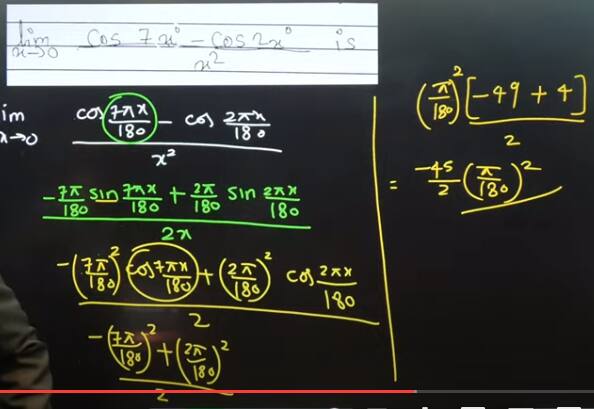 lim x→0 (cos 7x° – cos 2x°) / x² is
lim x→0 (cos 7πx/180 – cos 2πx/180) / x²
(-7π/180 sin 7πx/180 + 2π/180 sin 2πx/180) / 2x
(-(7π/180)² cos 7πx/180 + (2π/180)² cos 2πx/180) / 2
(-(7π/180)² + (2π/180)²) / 2
(π/180)² [-49 + 4] / 2
= -45/2 (π/180)²